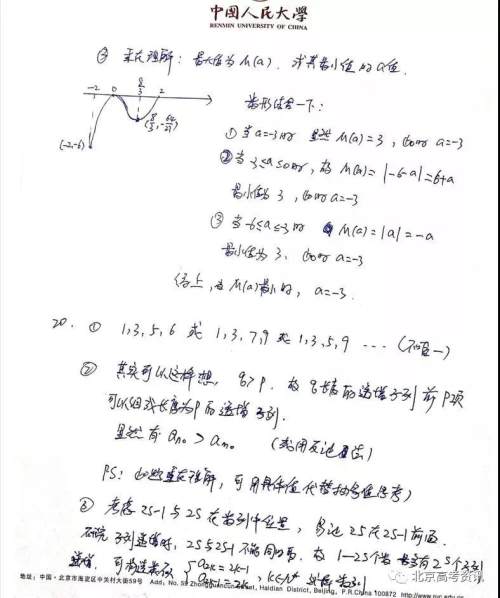 中國人民大學
RENMIN UNIVERSITY OF CHINA
③ 重在理解：最大值为M(a)．求其最小值的a值．
-2 0 8/3 2
(-2,-6) (8/3, -64/27)
数形结合一下：
① 当a=-3时 显然 M(a)=3，此时a=-3
② 当-3≤a≤0时，故 M(a)=|-6-a|=6+a
最小值为3，此时a=-3
③ 当-6≤a≤-3时 M(a)=|a|=-a
最小值为3．此时a=-3
综上，当M(a)最小时，a=-3．
20. ① 1,3,5,6 或 1,3,7,9 或 1,3,5,9 … (不唯一)
② 其实可以这样想，q>p．故q长度的递增子列前p项
可以组成长度为p的递增子列．
显然有 an₀ > am₀ (或用反证法)
PS：此题重在理解，可用具体值代替抽象值思考)
③ 考虑2S-1与2S在数列中位置，易证2S在2S-1前面．
子列递增时，2S与2S-1不能同时
a2k=2k-1
a2k-1=2k，k∈N*
地址：中国·北京市海淀区中关村大街59号 Add：No. 59 Zhongguancun Street, Haidian District, Beijing, P.R.China 100872 http://www.
北京高考资讯